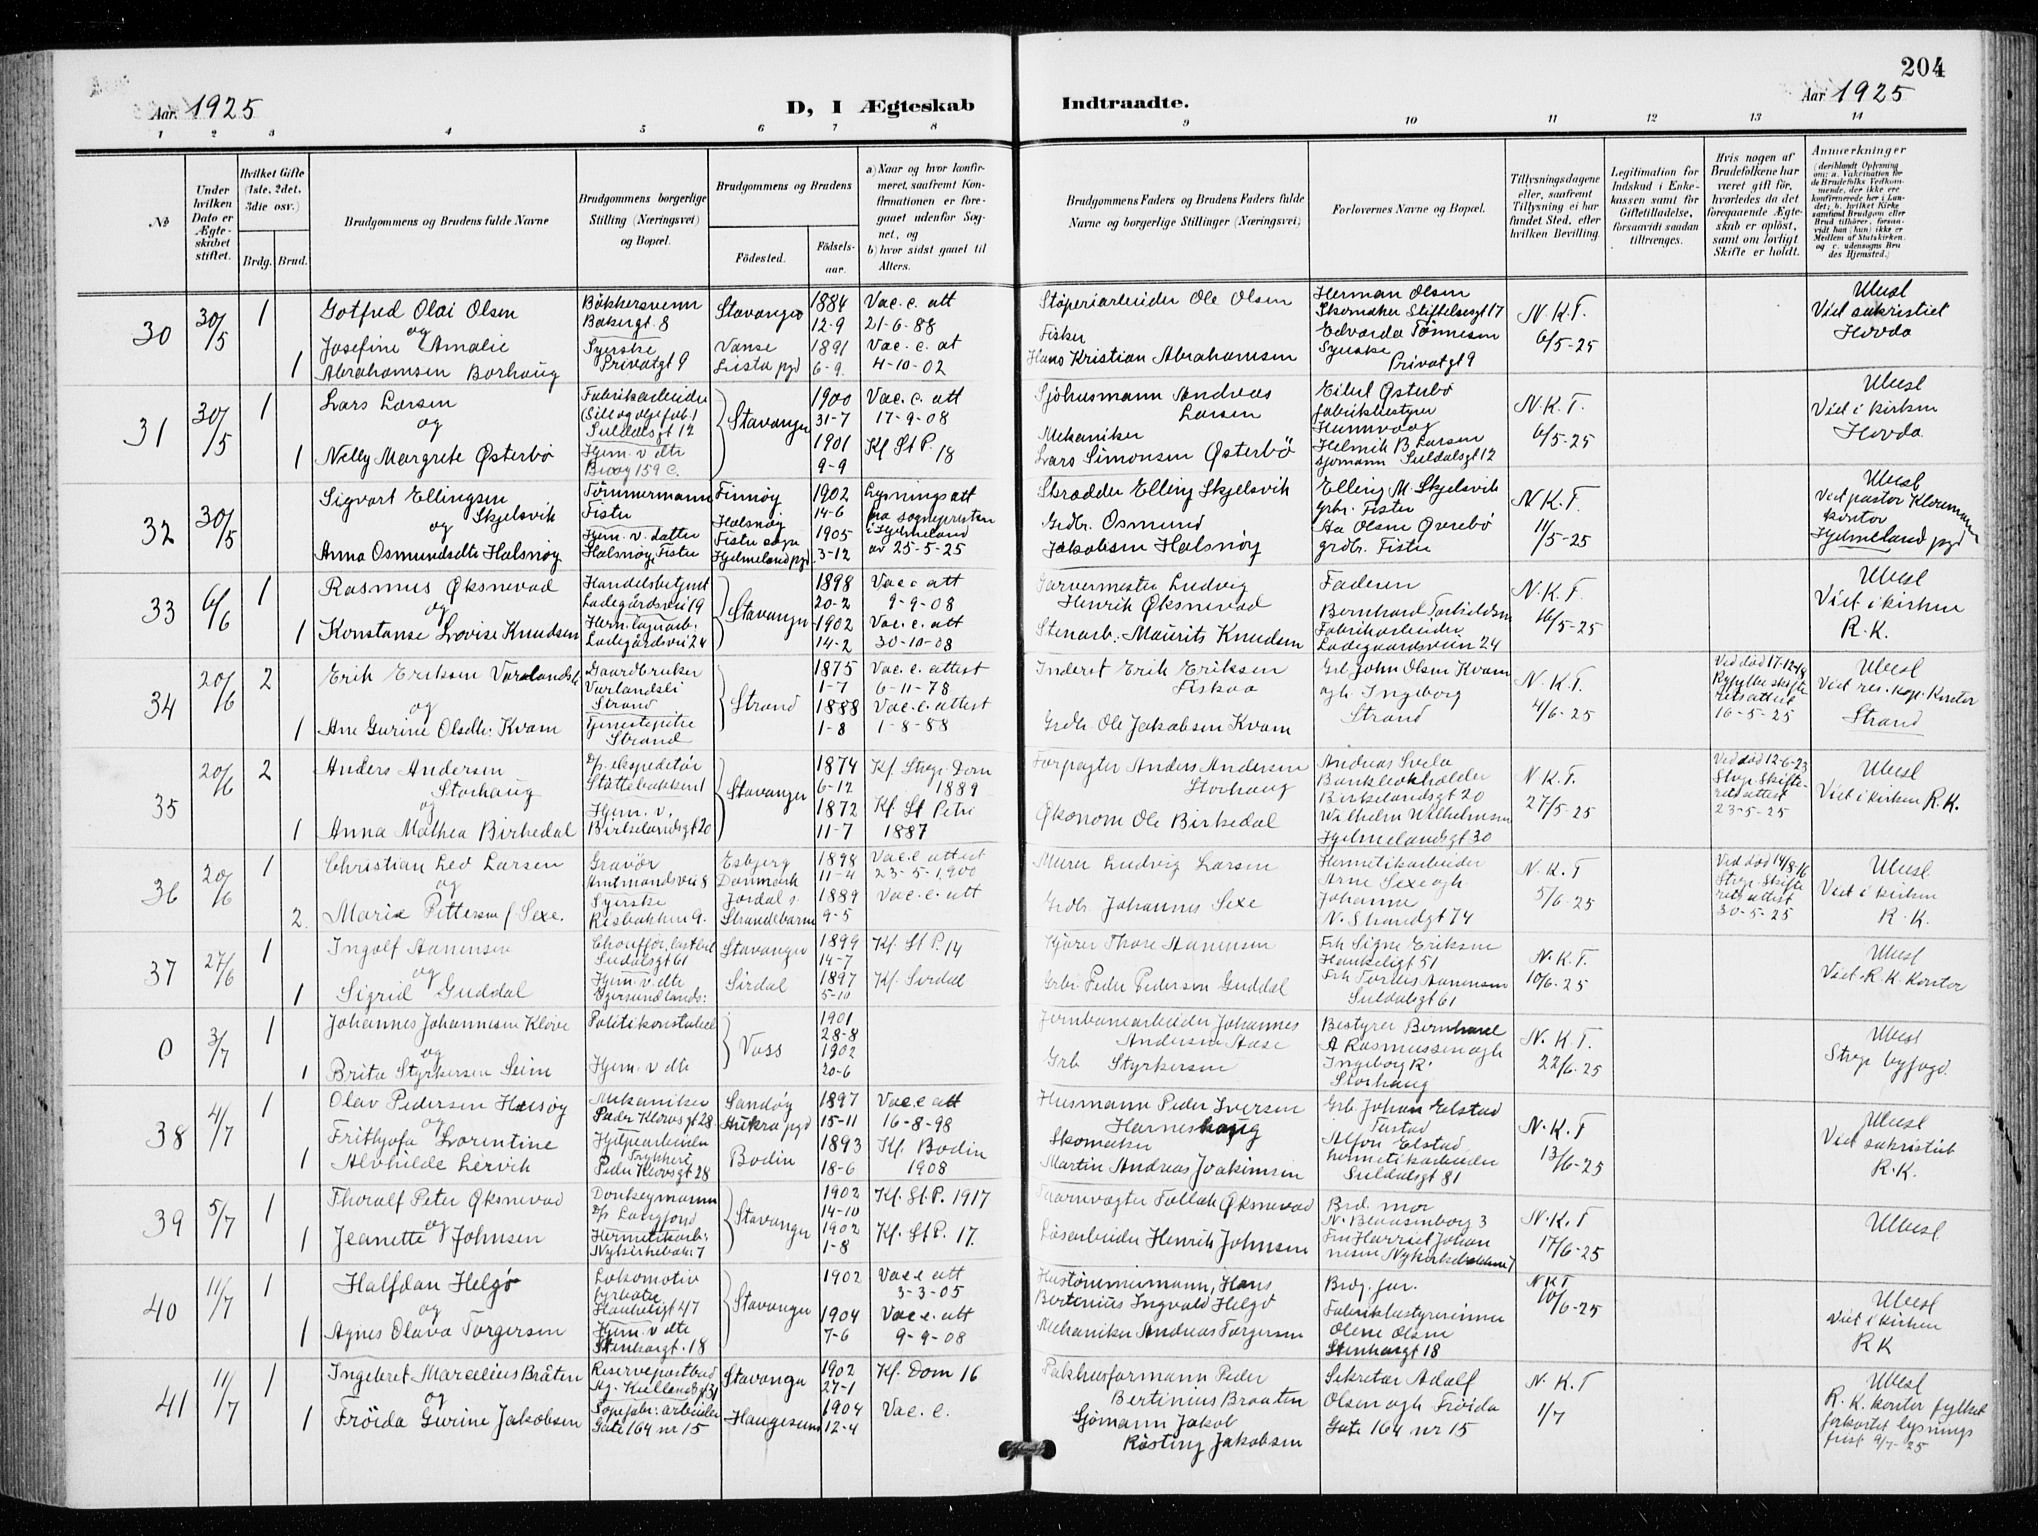 204
Aar. 1925
D, I Ægteskab
Indtraadte.
Aar 1925
1 2 3 4 5 6 7 8 9 10 11 12 13 14
No
Under hvilken Dato er Ægteskabet stiftet.
Hvilket Gifte (1ste, 2det, 3die osv.)
Brdg. Brud.
Brudgommens og Brudens fulde Navne
Brudgommens borgerlige Stilling (Næringsvei) og Bopæl.
Brudgommens og Brudens
Fødested.
Fødselsaar.
a) Naar og hvor konfirmeret, saafremt Konfirmationen er foregaaet udenfor Sognet, og
b) hvor sidst gaaet til Alters.
Brudgommens Faders og Brudens Faders fulde Navne og borgerlige Stillinger (Næringsvei)
Forlovernes Navne og Bopæl.
Tillysningsdagene eller, saafremt Tillysning ei har fundet Sted, efter hvilken Bevilling.
Legitimation for Indskud i Enkekassen samt for Giftetilladelse, forsaavidt saadan tiltrænges.
Hvis nogen af Brudefolkene har været gift før, hvorledes da det foregaaende Ægteskab er opløst, samt om lovligt Skifte er holdt.
Anmerkninger
30
30/5
1
Gotfred Olai Olsen
og
1 Josefine Amalie
Abrahamsen Borhaug
Bakkersvenn
Bakergt 8
Syerske
Privatgt 9
Stavanger
Vanse
Lista pgd
1884
12-9
1891
6-9.
Vac. c. att
21-6-88
Vac. c. at
4-10-02
Støperiarbeider Ole Olsen
Fisker
Hans Kristian Abrahamsen
Herman Olsen
Skomaker Stiftelsesgt 17
Edvarda Tønnesen
Syerske
Privatgt 9
N. K. T.
6/5-25
Ubesl
Viet sakristiet
Hovda
31
30/5
1
Lars Larsen
og
1 Nelly Margrete Østerbø
Fabrikarbeider
(Sild og olje fab.)
Suldalsgt 12
Hjem. v. dte
Bivog 159 C.
Stavanger
1900
31-7
1901
9-9
Vac. c. att
17-9-08
Kf St P. 18
Sjøhusmann Andreas
Larsen
Mekaniker
Lars Simonsen Østerbö
Eilert Østerbö
fabrikbestyrer
Hunnvaag
Helmik B. Larsen
sjømann Suldalsgt 12
N. K. T.
6/5-25
Ubesl
Viet i kirken
Hovda
32
30/5
Sigvart Ellingsen
og Skjelsvik
Anna Osmundsdtr Halsnøy
Tømmermann
Fister
Hjem. v. datter
Halsnøy Fister
Finnøy
Halsnøy
Fister sogn
Hjelmeland pgd
1902
14-6
1905
3-12
Lysningsatt
fra sogneprsten
i Hjelmeland
av 25-5-25
Skrædder Elling Skjelsvik
Grdbr. Osmund
Jakobsen Halsnøy
Elling M. Skjelsvik
grbr. Fister
Aa Olsen Øverebö
grdbr. Fister
N. K. T.
11/5-25
Ubesl
Viet pastor
kontor
Hjelmeland pgd
33
6/6
1
Rasmus Øksnevad
og
1 Konstanse Lovise Knudsen
Handelsbetjent
Ladegårdsvei 19
Herm. lagerarb.
Ladegårdsvei 24
Stavanger
1898
20-2
1902
14-2
Vac. c. att
9-9-08
Vac. c. att
30-10-08
Garvermester Ludvig
Henrik Øksnevad
Stenarb: Maurits Knudsen
Faderen
Bernhard Torkildsen
Fabrikarbeider
Ladegaardsveien 24
N. K. T.
16/5-25
Ubesl
Viet i kirken
R. K.
34
20/6
2
Erik Eriksen Varlandsli
og
1 Ane Gurine Olsdtr: Kvam
Gaardbruker
Varlandsli
Strand
Tjenestepike
Strand
Strand
1875
1-7
1888
1-8
Vac. c. attest
6-11-78
Vac. c. attest
1-8-88
Inderst Erik Eriksen
Fiskaa
Grdbr Ole Jakobsen Kvam
Grb John Olsen Kvam
ogh Ingeborg
Strand
N. K. T.
4/6-25
Ved død 17-12-18
Ryfylke skifte
rets attest
16-5-25
Ubesl
Viet res. kap. kontor
Strand
35
20/6
2
Anders Andersen
Storhaug
og
1 Anna Mathea Birkedal
D/s. ekspeditør
Støttebakken 1
Hjem. v.
Birkelandsgt 20
Stavanger
1874
6-12
1872
11-7
Kf. Stvgr. Dom
1889
Kf. St Petri
1887
Forpagter Anders Andersen
Storhaug
Økonom Ole Birkedal
Andreas Svela
Bankbokholder
Birkelandsgt 20
Wilhelm Wilhelmsen
Hjelmelandsgt 30
N. K. T.
27/5-25
Ved død 12-6-23
Stvgr Skifte-
rets attest
23-5-25
Ubesl
Viet i kirken R. K.
36
20/6
1
Christian Leo Larsen
og
2. Marie Pettersen f Sexe.
Gravör
Amtmandsvei 8
Syerske
Risbakken 9.
Esbjerg
Danmark
Jondal s.
Strandebarm
1898
11-4
1889
9-5
Vac. c attest
23-5-1900
Vac. c. att
Murer Ludvig Larsen
Grdbr Johannes Sexe
Hermetikarbeider
Arne Sexe ogh
Johanne
N. Strandgt 74
N. K. T
5/6-25
Ved død 14/8-16
Stvgr. Skifte
rets attest
30-5-25
Ubesl
Viet i kirken
R. K.
37
27/6
1
Ingolf Aanensen
og
1 Sigrid Guddal
Chouffør, lastebil
Suldalsgt 61
Hjem. v. dte
Stavanger
Sirdal
1899
14-7
1897
5-10
Kf. St P. 14
Kf. Sirdal
Kjører Thore Aanensen
Grbr Peder Pedersen Guddal
Frk Signe Eriksen
Haukeligt 51
Frk Tordis Aanensen
Suldalsgt 61
N. K. T.
10/6-25
Ubesl
Viet R. K. kontor
0
3/7
1
Johannes Johannesen Kløve
og
1 Brita Styrkersen Seim
Politikonstabel
Hjem. v dte
Voss
1901
28-8
1902
20-6
Jernbanearbeider Johannes
Andersen Aase
Grb Styrkersen
Bestyrer Bernhard
A Rasmussen ogh
Ingeborg R.
Storhaug
N. K. T.
22/6-25
Ubesl
Stvgr byfogd.
38
4/7
1
Olav Pedersen Harøy
og
Frithjofa Lorentine
1 Alvhilde Lervik
Mekaniker
Peder Klovsgt 28
Hjelpearbeider
Trykkeri
Peder Klovsgt 28
Sandøy
Aukra pgd
Bodin
1897
15-11
1893
18-6
Vac. c att
16-8-98
Kf. Bodin
1908
Husmann Peder Iversen
Harneshaug
Skomaker
Martin Andreas Joakimsen
Grb Johan Elstad
Alfon Elstad
hermetikarbeider
Suldalsgt 81
N. K. T
13/6-25
Ubesl
Viet sakristiet
R. K.
39
5/7
1
Thoralf Peter Øksnevad
og
1 Jeanette Johnsen
Donkeymann
D/s Langfond
Hermetikarb:
Nykirkebak: 7
Stavanger
1902
14-10
1902
1-8
Kf. St P. 1917
Kf. St P. 17.
Taarnvægter Tollak Øksnevad
Løsarbeider Henrik Johnsen
Brd. mor
N. Blaasenborg 3
Fru Harriet Johan
nesen Nykirkebakken 7
N. K. T
17/6-25
Ubesl
40
11/7
1
Halfdan Helgø
og
1 Agnes Olava Torgersen
Lokomotiv
fyrbøter
Haukeligt 47
Hjem. v dte
Stenhargt. 18
Stavanger
1902
1904
7-6
Vac. c att
3-3-05
Vac. c. att
9-9-08
Hustømmermann, Hans
Bertinius Ingvald Helgø
Mekaniker Andreas Torgersen
Brdg. far.
Fabrikbestyrerinne
Olene Olsen
Stenhargt 18
N K T
10/6-25
Ubesl
Viet i kirken
R K
41
11/7
1
Ingebret Marselius Bråten
og
1 Frøida Gurine Jakobsen
Reservepostbud
Ag. Kiellandsgt 31
Såpefabr: arbeider
Gate 164 nr 15
Stavanger
Haugesund
1902
27-1
1904
12-4
Kf. Dom 16
Vac. c.
Pakhusformann Peder
Bertinius Braaten
Sjømann Jakob
Røsting Jakobsen
Sekretær Adolf
Olsen ogh Frøida
Gate 164 nr 15
N. K. T
1/7
Ubesl
R. K. kontor fylket
forkortet lysnings
frist 9/7-25